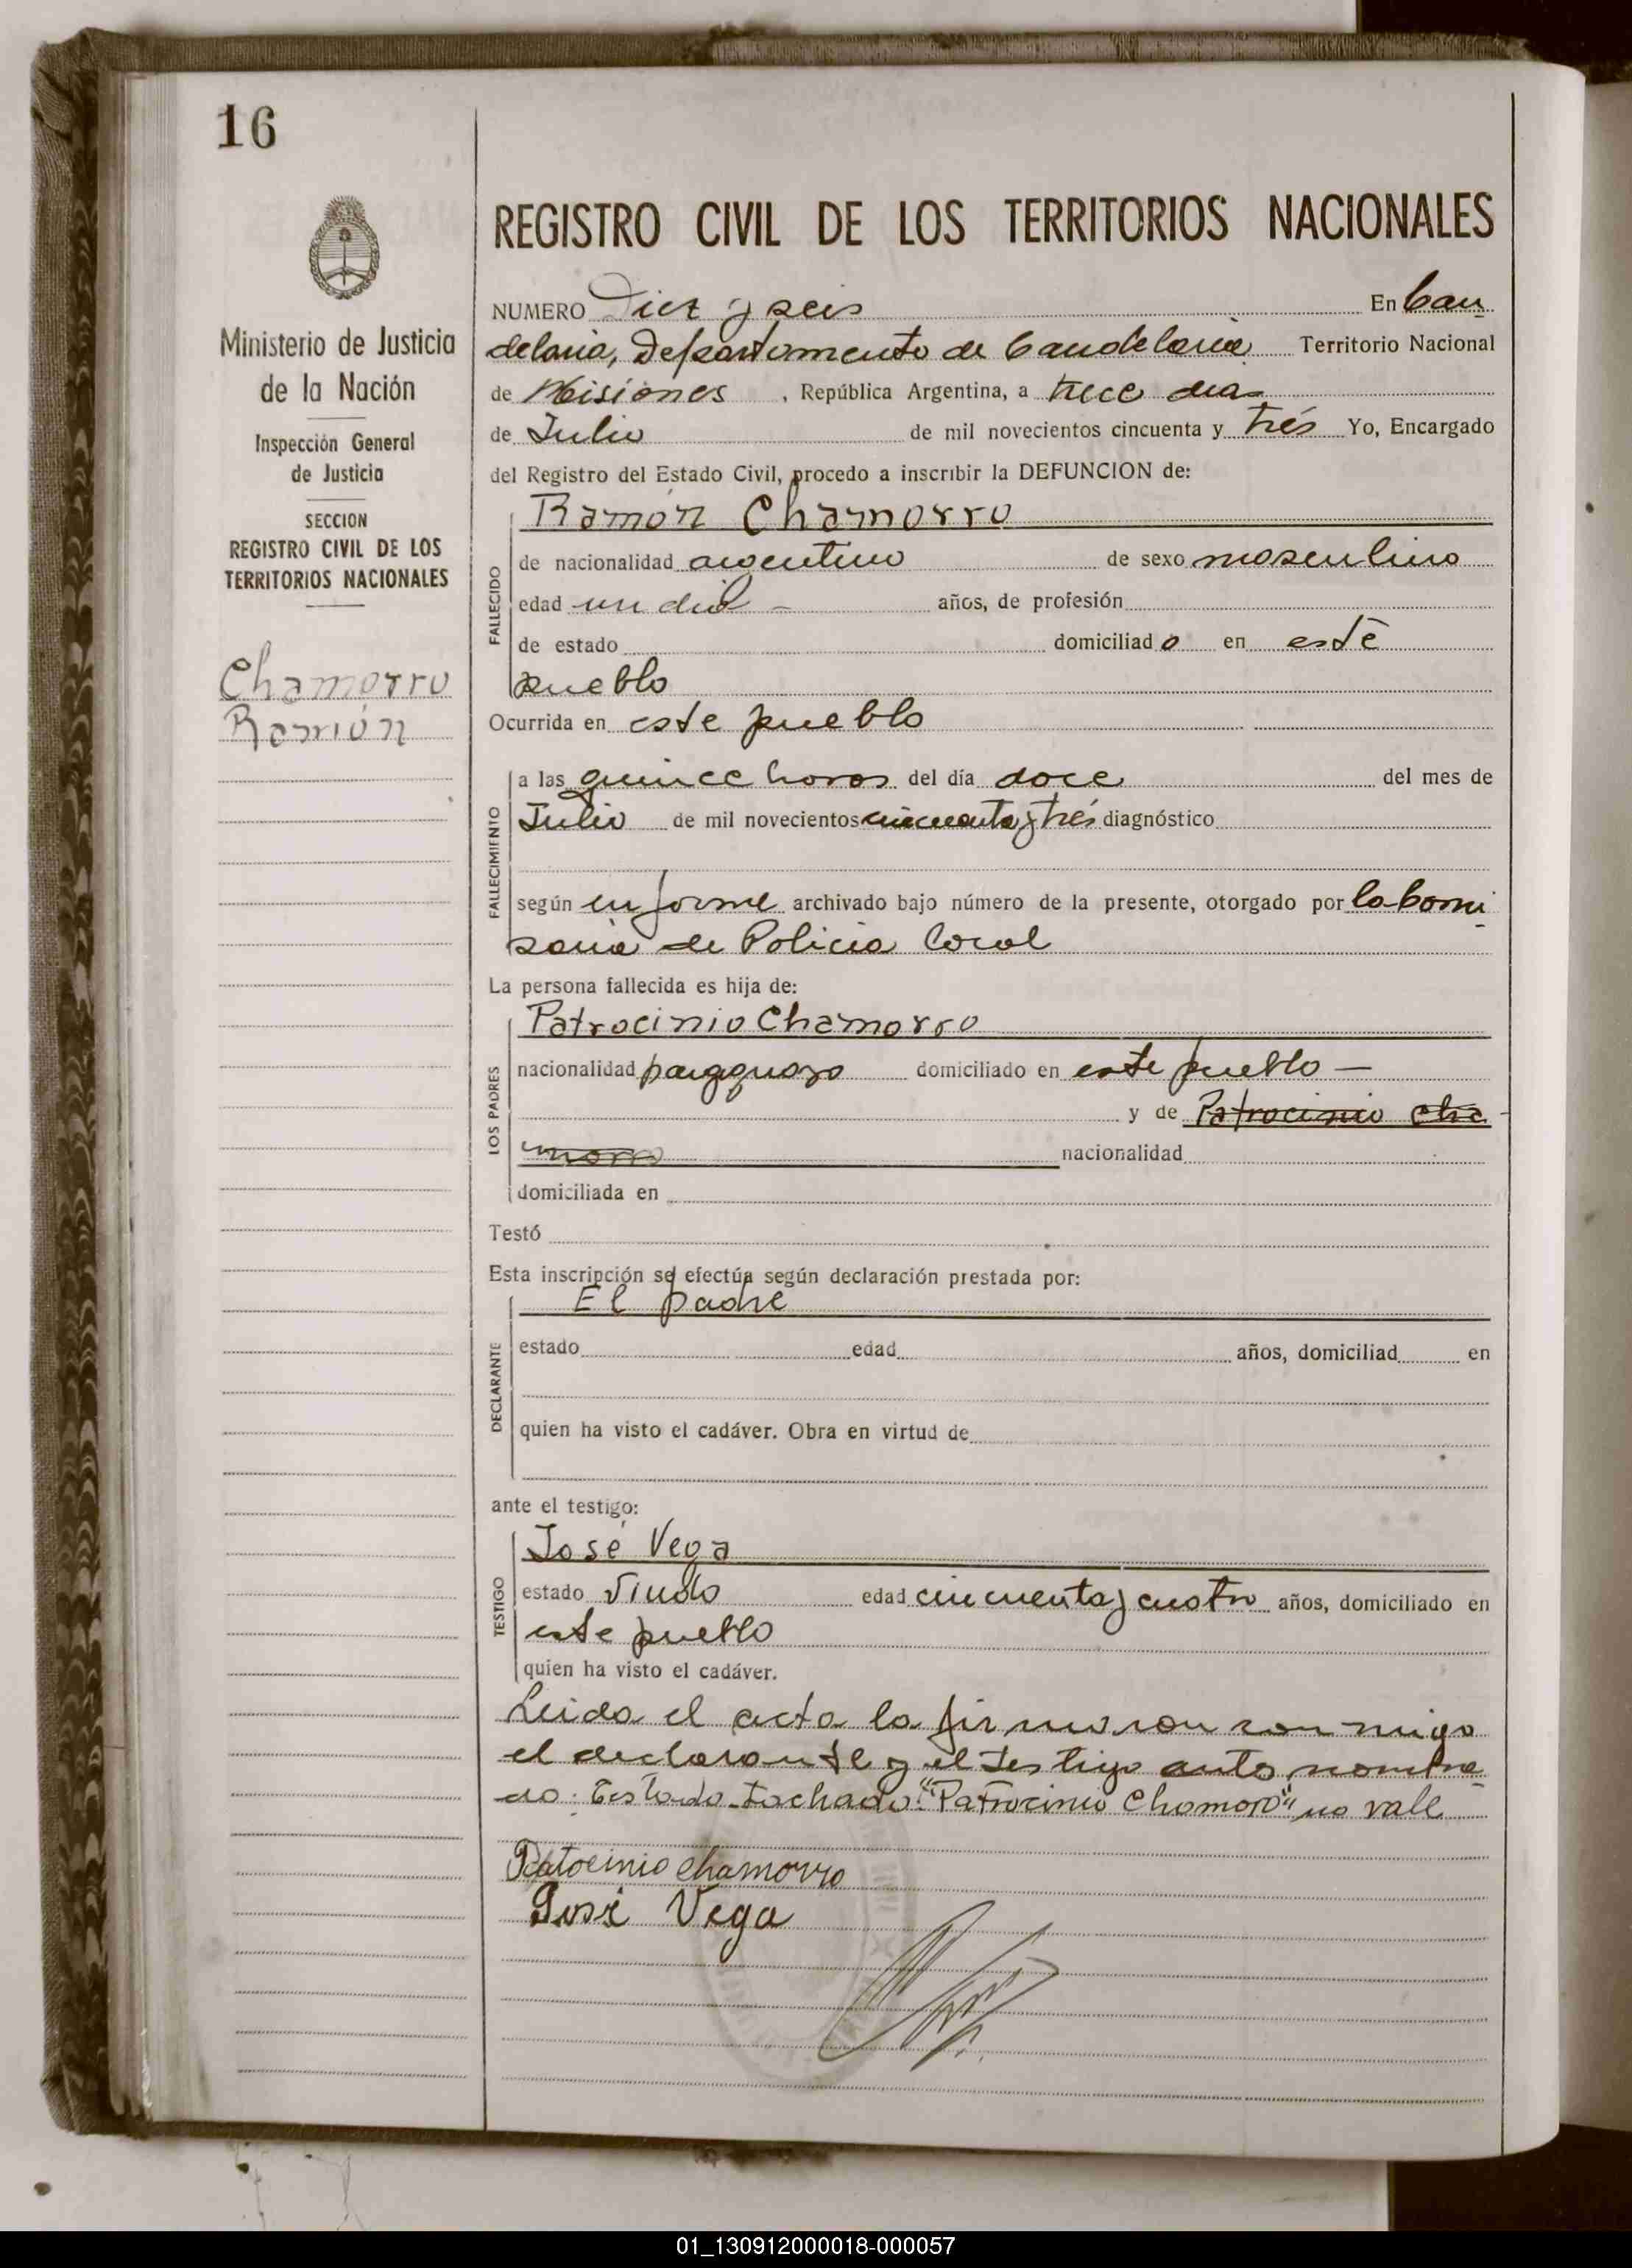 16
Ministerio de Justicia
de la Nación
Inspección General
de Justicia
SECCION
REGISTRO CIVIL DE LOS
TERRITORIOS NACIONALES
Chamorro
Ramón
REGISTRO CIVIL DE LOS TERRITORIOS NACIONALES
NUMERO Diez y seis En Can
delaria, Departamento de Candelaria Territorio Nacional
de Misiones, República Argentina, a trece dias
de Julio de mil novecientos cincuenta y trés Yo, Encargado
del Registro del Estado Civil, procedo a inscribir la DEFUNCION de:
Ramón Chamorro
FALLECIDO
de nacionalidad argentino de sexo masculino
edad un dia - años, de profesión
de estado domiciliado en este
pueblo
Ocurrida en este pueblo
FALLECIMIENTO
a las quince horas del día doce del mes de
Julio de mil novecientos cincuenta y trés diagnóstico
según informe archivado bajo número de la presente, otorgado por la Comi
saria de Policia Local
La persona fallecida es hija de:
LOS PADRES
Patrocinio Chamorro
nacionalidad paraguayo domiciliado en este pueblo —
y de Patrocinio Cha
morro nacionalidad
domiciliada en
Testó
Esta inscripción se efectúa según declaración prestada por:
El padre
DECLARANTE
estado edad años, domiciliad en
quien ha visto el cadáver. Obra en virtud de
ante el testigo:
José Vega
TESTIGO
estado Viudo edad cincuenta y cuatro años, domiciliado en
este pueblo
quien ha visto el cadáver.
Leida el acta la firmaron conmigo
el declarante y el testigo antes nombra
do: Testado-tachado: "Patrocinio Chamorro" no vale
Patocinio Chamorro
José Vega
01_130912000018-000057